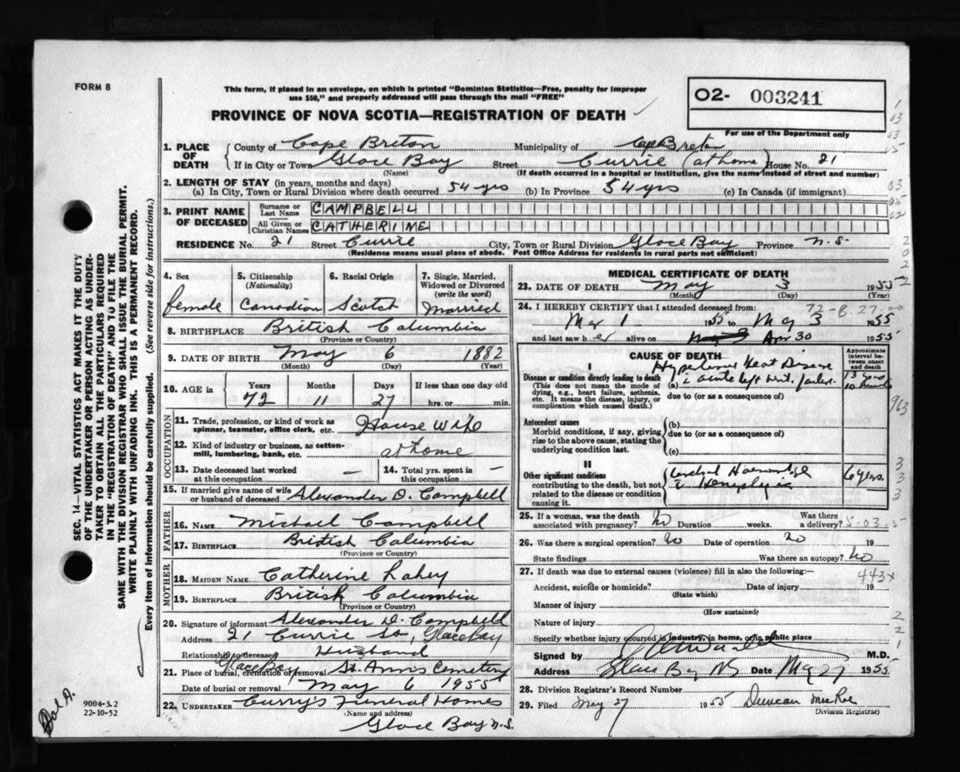 FORM 8
This form, if placed in an envelope, on which is printed "Dominion Statistics—Free, penalty for improper
use $50," and properly addressed will pass through the mail "FREE"
O2- 003241
For use of the Department only
PROVINCE OF NOVA SCOTIA—REGISTRATION OF DEATH
1. PLACE OF DEATH
County of Cape Breton Municipality of Cape Breton
If in City or Town Glace Bay Street Currie (at home) House No. 21
(Name) (If death occurred in a hospital or institution, give the name instead of street and number)
2. LENGTH OF STAY (in years, months and days)
(a) In City, Town or Rural Division where death occurred 54 yrs (b) In Province 54 yrs (c) In Canada (if immigrant)
3. PRINT NAME OF DECEASED
Surname or Last Name CAMPBELL
All Given or Christian Names CATHERINE
RESIDENCE No. 21 Street Currie City, Town or Rural Division Glace Bay Province N.S.
(Residence means usual place of abode. Post Office Address for residents in rural parts not sufficient)
4. Sex
female
5. Citizenship
(Nationality)
Canadian
6. Racial Origin
Scotch
7. Single, Married, Widowed or Divorced
(write the word)
Married
8. BIRTHPLACE British Columbia
(Province or Country)
9. DATE OF BIRTH May 6 1882
(Month) (Day) (Year)
10. AGE in Years Months Days If less than one day old
72 11 27 hrs. or min.
OCCUPATION
11. Trade, profession, or kind of work as
spinner, teamster, office clerk, etc. House Wife
12. Kind of industry or business, as cotton-
mill, lumbering, bank, etc. at home
13. Date deceased last worked
at this occupation —
14. Total yrs. spent in
this occupation —
15. If married give name of wife
or husband of deceased Alexander D. Campbell
FATHER
16. NAME Michael Campbell
17. BIRTHPLACE British Columbia
(Province or Country)
MOTHER
18. MAIDEN NAME Catherine Lahey
19. BIRTHPLACE British Columbia
(Province or Country)
20. Signature of informant Alexander D. Campbell
Address 21 Currie St, Glace Bay
Relationship to deceased Husband
21. Place of burial, cremation or removal Glace Bay St. Anns Cemetery
Date of burial or removal May 6 1955
22. UNDERTAKER Curry's Funeral Homes
(Name and address)
Glace Bay N.S.
MEDICAL CERTIFICATE OF DEATH
23. DATE OF DEATH May 3 1955
(Month) (Day) (Year)
24. I HEREBY CERTIFY that I attended deceased from:
Mar 1 1955 to May 3 1955
and last saw her alive on Apr 30 1955
CAUSE OF DEATH
Approximate interval between onset and death
I
Disease or condition directly leading to death
(This does not mean the mode of dying, e.g., heart failure, asthenia, etc. It means the disease, injury, or complication which caused death.)
(a) Hypertensive Heart Disease
due to (or as a consequence of)
Antecedent causes
Morbid conditions, if any, giving rise to the above cause, stating the underlying condition last.
(b)
due to (or as a consequence of)
(c)
II
Other significant conditions
contributing to the death, but not related to the disease or condition causing it.
Cerebral Haemorrhage
Hemiplegia
6 years.
25. If a woman, was the death
associated with pregnancy? No Duration weeks. Was there a delivery?
26. Was there a surgical operation? No Date of operation No 19
State findings Was there an autopsy? No
27. If death was due to external causes (violence) fill in also the following:—
443x
Accident, suicide or homicide? Date of injury 19
(State which)
Manner of injury
(How sustained)
Nature of injury
Specify whether injury occurred in industry, in home, or in public place
Signed by M.D.
Address Glace Bay NS Date May 27 1955
28. Division Registrar's Record Number
29. Filed May 27 1955 Duncan MacRae
Division Registrar)
SEC. 14—VITAL STATISTICS ACT MAKES IT THE DUTY
OF THE UNDERTAKER OR PERSON ACTING AS UNDER-
TAKER TO OBTAIN ALL THE PARTICULARS REQUIRED
IN THE "REGISTRATION OF DEATH" AND TO FILE THE
SAME WITH THE DIVISION REGISTRAR WHO SHALL ISSUE THE BURIAL PERMIT.
WRITE PLAINLY WITH UNFADING INK. THIS IS A PERMANENT RECORD.
Every item of information should be carefully supplied. (See reverse side for instructions.)
9004-3.2
22-10-52